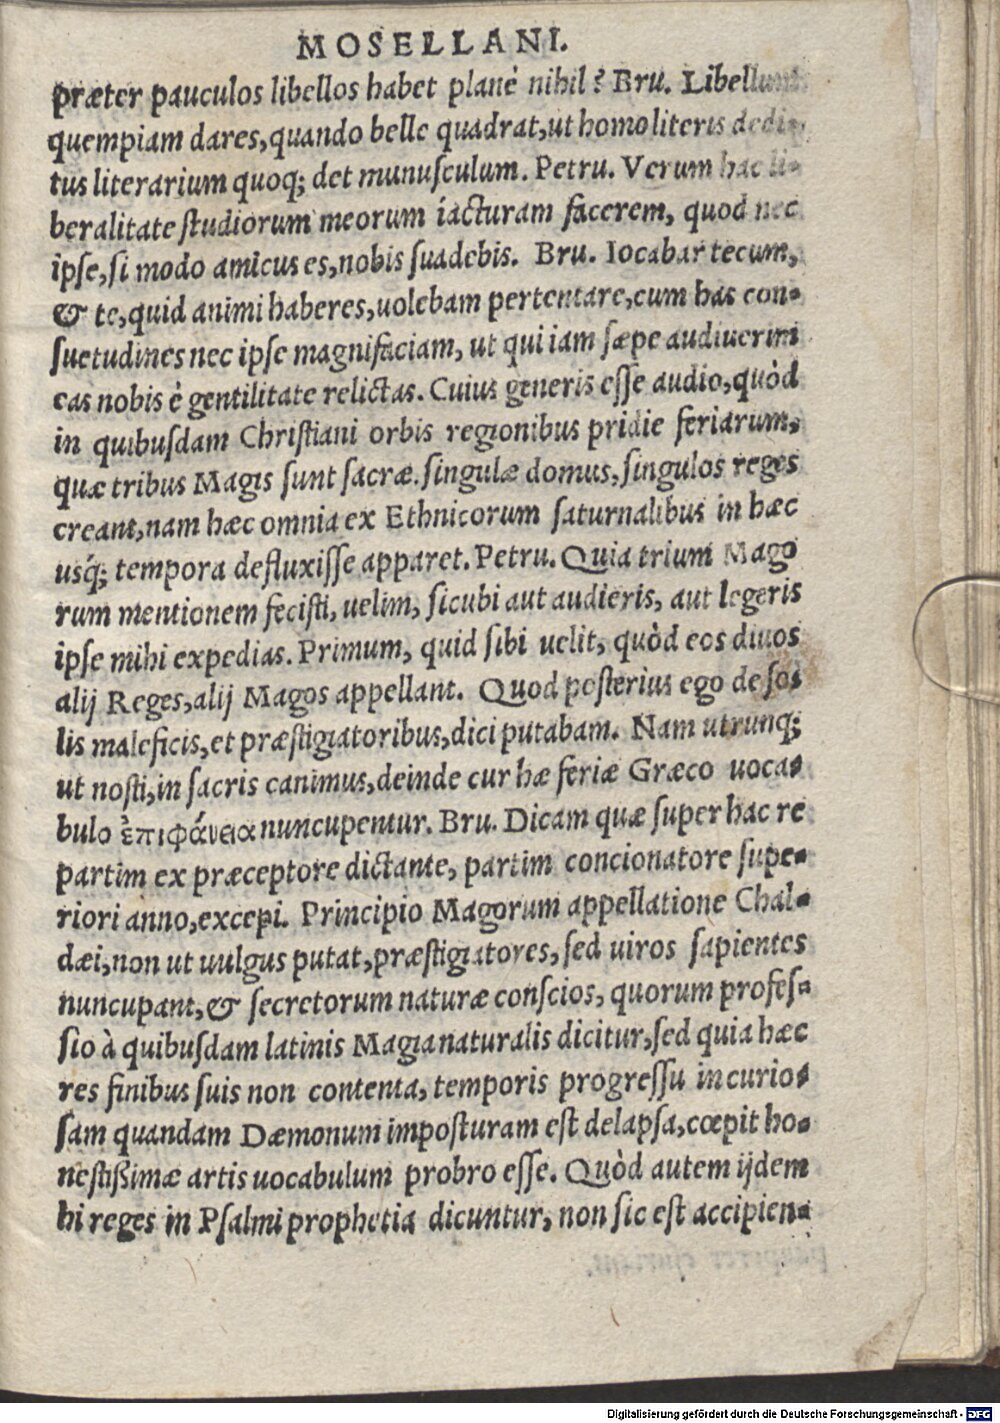 MOSELLANI.
præter pauculos libellos habet planè nihil? Bru. Libellum
quempiam dares,quando belle quadrat,ut homo literis dedi-
tus literarium quoq; det munuſculum. Petru. Verum hac li-
beralitate ſtudiorum meorum iacturam facerem, quod nec
ipſe,ſi modo amicus es,nobis ſuadebis. Bru. Iocabar tecum,
& te,quid animi haberes,uolebam pertentare,cum has con-
ſuetudines nec ipſe magnifaciam, ut qui iam ſæpe audiuerim
eas nobis è gentilitate relictas. Cuius generis eſſe audio,quòd
in quibuſdam Chriſtiani orbis regionibus pridie feriarum,
quæ tribus Magis ſunt ſacræ.ſingulæ domus,ſingulos reges
creant,nam hæc omnia ex Ethnicorum ſaturnalibus in hæc
uſq́; tempora defluxiſſe apparet. Petru. Quia trium Mago
rum mentionem feciſti, uelim, ſicubi aut audieris, aut legeris
ipſe mihi expedias. Primum, quid ſibi uelit, quòd eos diuos
alij Reges,alij Magos appellant. Quod poſterius ego de ſo-
lis maleficis,et præſtigiatoribus,dici putabam. Nam utrunq;
ut noſti,in ſacris canimus,deinde cur hæ feriæ Græco uoca-
bulo ἐπιφάνεια nuncupentur. Bru. Dicam quæ ſuper hac re
partim ex præceptore dictante, partim concionatore ſupe-
riori anno,excepi. Principio Magorum appellatione Chal-
dæi,non ut uulgus putat,præſtigiatores,ſed uiros ſapientes
nuncupant,& ſecretorum naturæ conſcios, quorum profeſ-
ſio à quibuſdam latinis Magia naturalis dicitur,ſed quia hæc
res finibus ſuis non contenta, temporis progreſſu in curio-
ſam quandam Dæmonum impoſturam eſt delapſa,cœpit ho-
neſtißimæ artis uocabulum probro eſſe. Quòd autem ijdem
hi reges in Pſalmi prophetia dicuntur, non ſic eſt accipien-
Digitalisierung gefördert durch die Deutsche Forschungsgemeinschaft - DFG